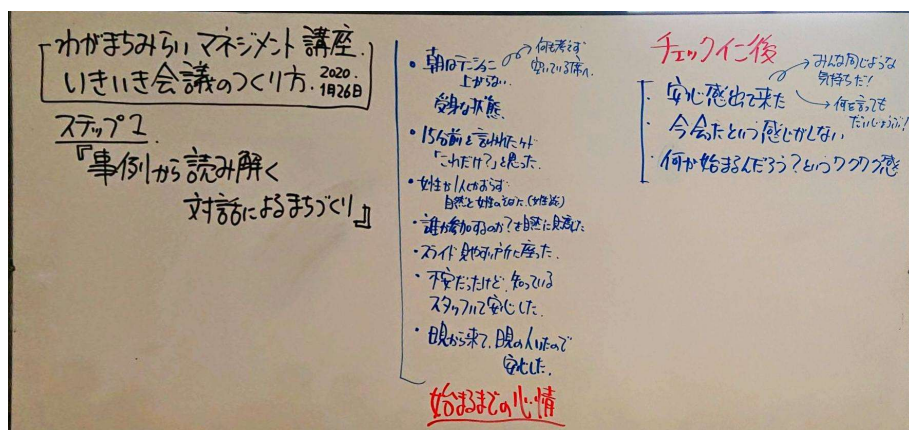 わがまちみらいマネジメント講座.
いきいき会議のつくり方. 2020.
1月26日
ステップ2
『事例から読み解く
対話によるまちづくり』
・朝はテンションに
上がらない.
受身な状態.
何も考えず
空いている席へ.
・15分前と言われたけど
「これだけ?」と思った.
・女性が1人しかおらず
自然と女性の
・誰が参加するのか?を自然に見渡した
・スライド見やすい所に座った.
・不安だったけど、知っている
スタッフいて安心した.
・から来て、の人いたので
安心した.
始まるまでの心情
チェックイン後
・安心感出て来た
みんな同じような
気持ちだ!
何を言っても
だいじょうぶ!
・今会ったという感じがしない
・何か始まるんだろう?というワクワク感